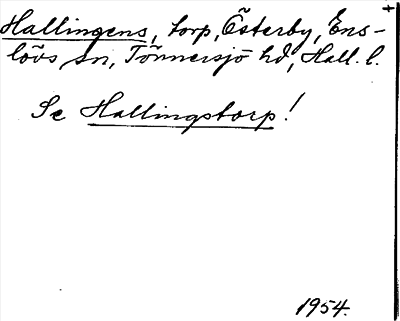 Hallingens, torp, Österby, Ens-
lövs sn, Tönnersjö hd, Hall. l.
Se Hallingstorp!
1954.